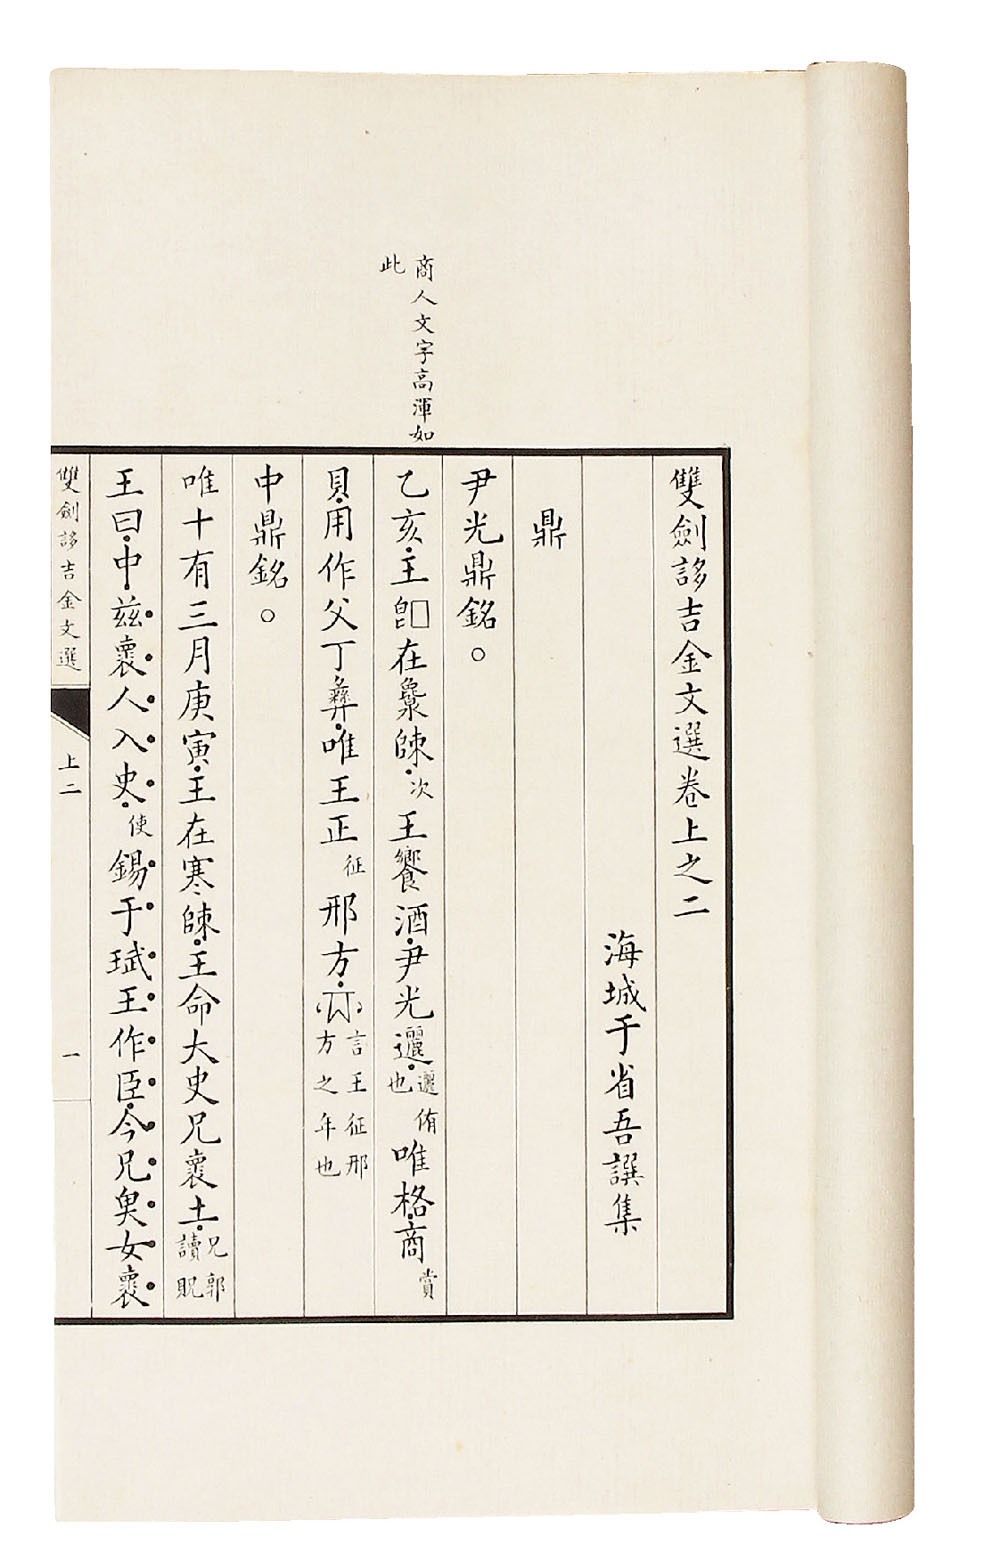 商人文字高渾如
此
雙劍誃吉金文選卷上之二
海城于省吾譔集
鼎
尹光鼎銘。
乙亥王□在𣡌𠂤次王饗酒尹光邐邐侑也唯格商賞
貝用作父丁彝唯王正征邢方言王征邢方之年也
中鼎銘。
唯十有三月庚寅王在寒𠂤王命大史兄褱土兄郭讀貺
王曰中茲褱人入史使錫于珷王作臣今兄𢌿女褱
雙劍誃吉金文選
上二
一